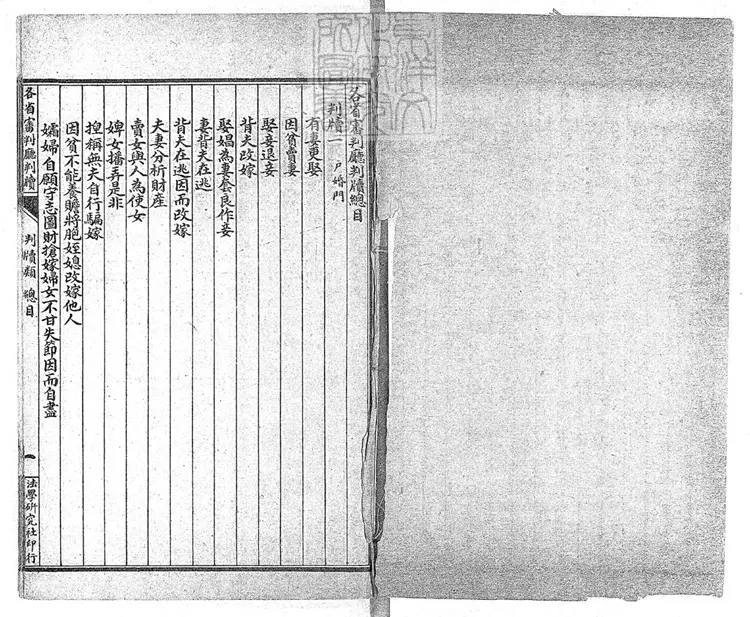 各省審判廳判牘總目
判牘一 戶婚門
有妻更娶
因貧賣妻
娶妾退妾
背夫改嫁
娶娼為妻套良作妾
妻背夫在逃
背夫在逃因而改嫁
夫妻分析財產
賣女與人為使女
婢女播弄是非
捏稱無夫自行騙嫁
因貧不能養贍將胞姪媳改嫁他人
孀婦自願守志圖財搶嫁婦女不甘失節因而自盡
各省審判廳判牘
判牘類 總目
一
法學研究社印行